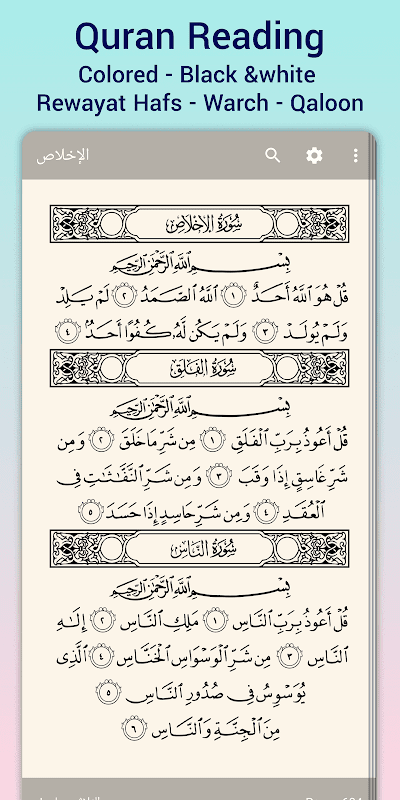 Quran Reading
Colored - Black &white
Rewayat Hafs - Warch - Qaloon
الإخلاص
سُورَةُ الإِخْلَاصِ
بِسْمِ اللَّهِ الرَّحْمَٰنِ الرَّحِيمِ
قُلْ هُوَ اللَّهُ أَحَدٌ ١ اللَّهُ الصَّمَدُ ٢ لَمْ يَلِدْ
وَلَمْ يُولَدْ ٣ وَلَمْ يَكُن لَّهُ كُفُوًا أَحَدٌ ٤
سُورَةُ الفَلَقِ
بِسْمِ اللَّهِ الرَّحْمَٰنِ الرَّحِيمِ
قُلْ أَعُوذُ بِرَبِّ الْفَلَقِ ١ مِن شَرِّ مَا خَلَقَ ٢ وَمِن
شَرِّ غَاسِقٍ إِذَا وَقَبَ ٣ وَمِن شَرِّ النَّفَّاثَاتِ فِي
الْعُقَدِ ٤ وَمِن شَرِّ حَاسِدٍ إِذَا حَسَدَ ٥
سُورَةُ النَّاسِ
بِسْمِ اللَّهِ الرَّحْمَٰنِ الرَّحِيمِ
قُلْ أَعُوذُ بِرَبِّ النَّاسِ ١ مَلِكِ النَّاسِ ٢ إِلَٰهِ
النَّاسِ ٣ مِن شَرِّ الْوَسْوَاسِ الْخَنَّاسِ ٤ الَّذِي
يُوَسْوِسُ فِي صُدُورِ النَّاسِ ٥
مِنَ الْجِنَّةِ وَالنَّاسِ ٦